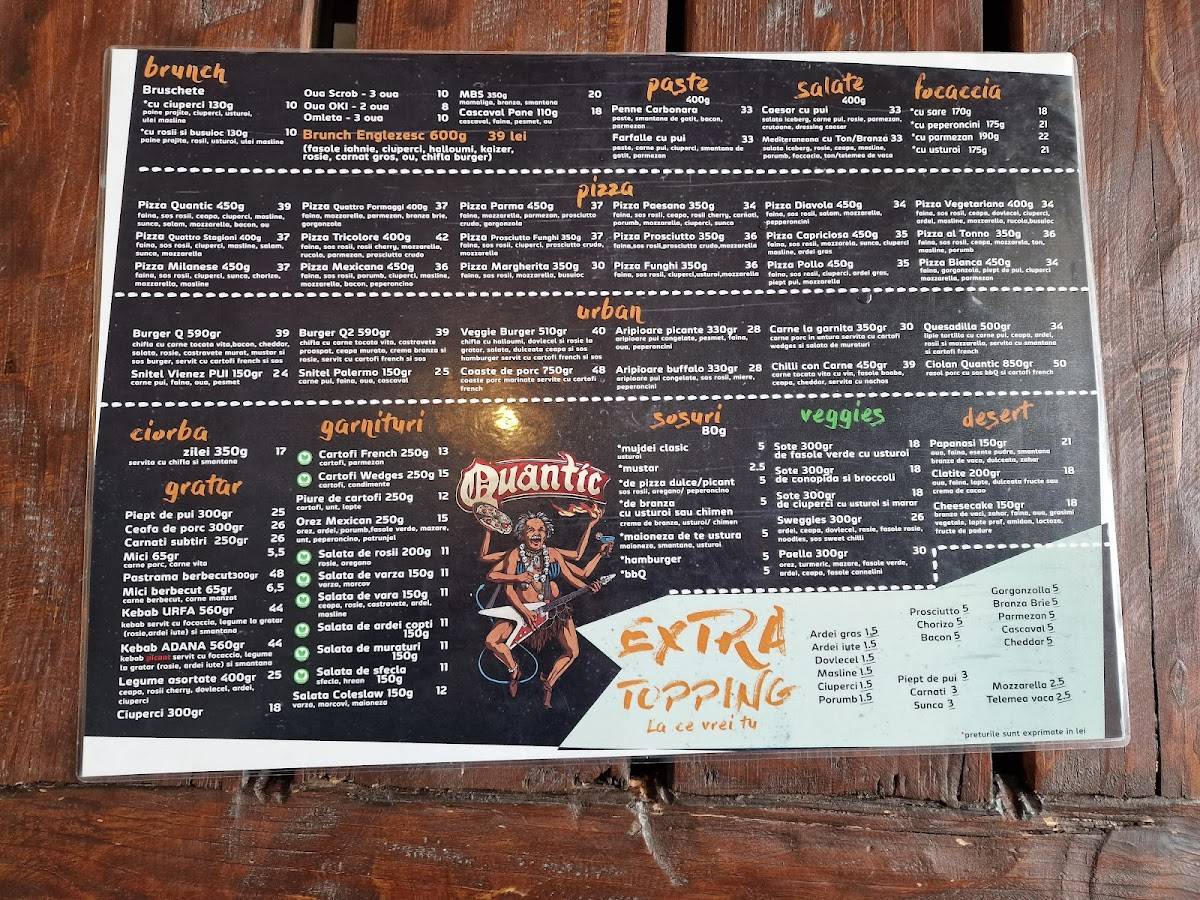 brunch
Bruschete
*cu ciuperci 130g 10
paine prajita, ciuperci, usturoi,
ulei masline
*cu rosii si busuioc 130g 10
paine prejita, rosii, usturoi, ulei masline
Oua Scrob - 3 oua 10
Oua OKI - 2 oua 8
Omleta - 3 oua 10
Brunch Englezesc 600g 39 lei
(fasole iahnie, ciuperci, halloumi, kaizer,
rosie, carnat gros, ou, chifla burger)
MBS 350g 20
mamaliga, branza, smantana
Cascaval Pane 110g 18
cascaval, faina, pesmet, ou
paste
400g
Penne Carbonara 33
paste, smantana de gatit, bacon,
parmezan
Farfalle cu pui 33
paste, carne pui, ciuperci, smantana de
gatit, parmezan
salate
400g
Caesar cu pui 33
salata iceberg, carne pui, rosie, parmezan,
crutoane, dressing caesar
Mediteraneana cu Ton/Branza 33
salata iceberg, rosie, ceapa, masline,
porumb, foccacia, ton/telemea de vaca
focaccia
*cu sare 170g 18
*cu peperoncini 175g 21
*cu parmezan 190g 22
*cu usturoi 175g 21
pizza
Pizza Quantic 450g 39
faina, sos rosii, ceapa, ciuperci, masline,
sunca, salam, mozzarella, bacon, ou
Pizza Quatro Stagioni 400g 37
faina, sos rosii, ciuperci, masline, salam,
sunca, mozzarella
Pizza Milanese 450g 37
faina, sos rosii, ciuperci, sunca, chorizo,
mozzarella, masline
Pizza Quattro Formaggi 400g 37
faina, mozzarella, parmezan, branza brie,
gorgonzola
Pizza Tricolore 400g 42
faina, sos rosii, rosii cherry, mozzarella,
rucola, parmezan, prosciutto crudo
Pizza Mexicana 450g 36
faina, sos rosii, porumb, ciuperci, masline,
mozzarella, bacon, peperoncino
Pizza Parma 450g 37
faina, mozzarella, parmezan, prosciutto
crudo, gorgonzola
Pizza Prosciutto Funghi 350g 37
faina, sos rosii, ciuperci, prosciutto crudo,
mozzarella
Pizza Margherita 350g 30
faina, sos rosii, mozzarella, busuioc
Pizza Paesana 350g 34
faina, sos rosii, ceapa, rosii cherry, carnati,
porumb, mozzarella, ciuperci, sunca
Pizza Prosciutto 350g 36
faina,sos rosii,prosciutto crudo,mozzarella
Pizza Funghi 350g 36
faina, sos rosii, ciuperci,usturoi,mozzarella
Pizza Diavola 450g 34
faina, sos rosii, salam, mozzarella,
pepperoncini
Pizza Capriciosa 450g 35
faina, sos rosii, mozzarela, sunca, ciuperci,
masline, ardei gras
Pizza Pollo 450g 35
faina, sos rosii, ciuperci, ardei gras,
piept pui, mozzarella
Pizza Vegetariana 400g 34
faina, sos rosii, ceapa, dovlecel, ciuperci,
ardei, masline, mozzarella, rucola,busuioc
Pizza al Tonno 350g 36
faina, sos rosii, ceapa, mozzarela, ton,
masline, porumb
Pizza Bianca 450g 34
faina, gorgonzola, piept de pui, ciuperci
mozzarella, parmezan
urban
Burger Q 590gr 39
chifla cu carne tocata vita,bacon, cheddar,
salata, rosie, castravete murat, mustar si
sos burger, servit cu cartofi french si sos
Snitel Vienez PUI 150gr 24
carne pui, faina, oua, pesmet
Burger Q2 590gr 39
chifla cu carne tocata vita, castravete
proaspat, ceapa murata, crema branza si
rosie, servit cu cartofi french si sos
Snitel Palermo 150gr 25
carne pui, faina, oua, cascaval
Veggie Burger 510gr 40
chifla cu halloumi, dovlecel si rosie la
gratar, salata, dulceata ceapa si sos
hamburger servit cu cartofi french si sos
Coaste de porc 750gr 48
coaste porc marinate servite cu cartofi
french
Aripioare picante 330gr 28
aripioare pui congelate, pesmet, faina,
oua, peperoncini
Aripioare buffalo 330gr 28
aripioare pui congelate, sos rosii, miere,
peperoncini
Carne la garnita 350gr 30
carne porc in untura servita cu cartofi
wedges si salata de muraturi
Chilli con Carne 450gr 39
carne tocata vita cu vin, fasole boabe,
ceapa, cheddar, servita cu nachos
Quesadilla 500gr 34
lipie tortilla cu carne pui, ceapa, ardei,
rosii si mozzarella, servita cu smantana
si cartofi french
Ciolan Quantic 850gr 50
rasol porc cu sos bbQ si cartofi french
ciorba
zilei 350g 17
servita cu chifla si smantana
gratar
Piept de pui 300gr 25
Ceafa de porc 300gr 26
Carnati subtiri 250gr 26
Mici 65gr 5,5
carne porc, carne vita
Pastrama berbecut300gr 48
Mici berbecut 65gr 6,5
carne berbecut, carne manzat
Kebab URFA 560gr 44
kebab servit cu focaccio, legume la gratar
(rosie,ardei iute) si smantana
Kebab ADANA 560gr 44
kebab picant servit cu focaccio, legume
la gratar (rosie, ardei iute) si smantana
Legume asortate 400gr 25
ceapa, rosii cherry, dovlecel, ardei,
ciuperci
Ciuperci 300gr 18
garnituri
Cartofi French 250g 13
cartofi, parmezan
Cartofi Wedges 250g 15
cartofi, condimente
Piure de cartofi 250g 12
cartofi, unt, lapte
Orez Mexican 250g 15
orez, ardei, porumb,fasole verde, mazare,
unt, peperoncino, patrunjel
Salata de rosii 200g 11
rosie, oregano
Salata de varza 150g 11
varza, morcov
Salata de vara 150g 11
ceapa, rosie, castravete, ardei,
masline
Salata de ardei copti 11
150g
Salata de muraturi 11
150g
Salata de sfecla 11
sfecla, hrean 150g
Salata Coleslaw 150g 12
varza, morcovi, maioneza
Quantic
sosuri
80g
*mujdei clasic 5
usturoi
*mustar 2.5
*de pizza dulce/picant 5
sos rosii, oregano/ peperoncino
*de branza
cu usturoi sau chimen 5
crema de branza, usturoi/ chimen
*maioneza de te ustura 5
maioneza, smantana, usturoi
*hamburger 5
*bbQ 5
veggies
Sote 300gr 18
de fasole verde cu usturoi
Sote 300gr 18
de conopida si broccoli
Sote 300gr 18
de ciuperci cu usturoi si marar
Sweggies 300gr 26
ardei, ceapa, dovlecel, rosie, fasole rosie,
noodles, sos sweet chilli
Paella 300gr 30
orez, turmeric, mazare, fasole verde,
ardei, ceapa, fasole cannelini
desert
Papanasi 150gr 21
oua, faina, esente pudra, smantana
branza de vaca, dulceata, zahar
Clatite 200gr 18
oua, faina, lapte, dulceata fructe sau
crema de cacao
Cheesecake 150gr 18
branza de vaci, zahar, faina, oua, grasimi
vegetale, lapte praf, amidon, lactoza,
fructe de padure
EXTRA
TOPPING
La ce vrei tu
Ardei gras 1,5
Ardei iute 1.5
Dovlecel 1.5
Masline 1.5
Ciuperci 1.5
Porumb 1.5
Prosciutto 5
Chorizo 5
Bacon 5
Piept de pui 3
Carnati 3
Sunca 3
Gorgonzolla 5
Branza Brie 5
Parmezan 5
Cascaval 5
Cheddar 5
Mozzarella 2.5
Telemea vaca 2.5
*preturile sunt exprimate in lei